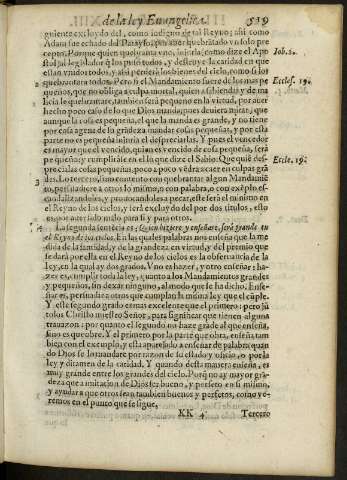 de la ley Euangelica. 519
guiente excluydo del, como indigno de tal Reyno; assi como
Adam fue echado del Parayso, por auer quebrãtado vn solo pre
cepto. Porque quien quebranta vno, injuria, como dize el Apo
stol, al legislador q̃ los puso todos, y destruye la caridad en que
estan vnidos todos, y assi perderà los bienes del cielo, como si los
quebrantara todos. Pero si el Mandamiento fuere de los mas pe
queños, que no obliga a culpa mortal, quien a sabiendas y de ma
licia le quebrantare, tambien serà pequeno en la virtud, por auer
hecho poco caso de lo que Dios manda; pues deuiera mirar, que
aunque la cosa es pequeña, el que la manda es grande, y no tiene
por cosa agena de su grãdeza mandar cosas pequeñas, y por esta
parte no es pequeña injuria el despreciarlas. Y pues el vencedor
es mayor que el vencido, quien es vencido de cosa pequeña, serà
pequeño; y cumplirase en el lo que dize el Sabio: Que quiẽ des-
precia las cosas pequeñas, poco a poco vedrà a caer en culpas grã
des. Lo tercero, sino contento con quebrantar algun Mandamiẽ
to, persuadiere a otros lo mismo, o con palabra, o con exẽplo es-
candalizandoles, y prouocandoles a pecar, este serà el minimo en
el Reyno de los cielos, y serà excluydo del por dos titulos, esto
es, por auer sido malo para si y para otros.
La segunda sentẽcia es: Quien hiziere y enseñare, serà grande en
el Reyno de los cielos. En las quales palabras nos enseña que la me
dida de la santidad, y de la grandeza en virtud, y del premio que
se darà por ella en el Reyno de los cielos es la obseruancia de la
ley, en la qual ay dos grados. Vno es hazer, y otro enseñar: ha-
zer es, cumplir toda la ley, quanto a los Mandamientos grandes
y pequeños, sin dexar ninguno, al modo que ha dicho. Ense-
ñar es, persuadir a otros que cumplan la misma ley que el cũple.
Y este segundo grado es mas excelente que el primero: pero jũ
tolos Christo nuestro Señor, para significar que tienen alguna
trauazon: por quanto el segundo no haze grãde al que enseña,
sino es que obre. Y el primero por la parte que obra, enseña tam
bien con el exemplo, y esta aparejado a enseñar de palabra, quan
do Dios se lo mandare por razon de su estado y oficio, o por la
ley y ditamen de la caridad. Y quando desta manera enseña, es
muy grande entre los grandes del cielo. Porq̃ no ay mayor grã-
deza que a imitacion de Dios ser bueno, y perfeto en si mismo,
y ayudar a que otros sean tambien buenos y perfetos, como ve-
remos en el punto que se sigue.
KK 4 Tercero
Iob. 2.
Eccles. 19.
Eccle. 19.